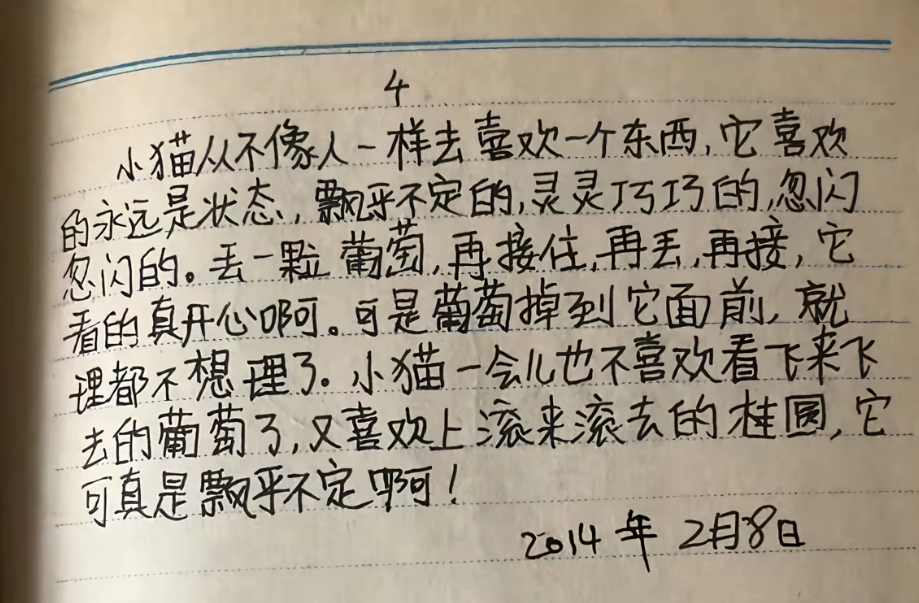 4
小猫从不像人一样去喜欢一个东西,它喜欢
的永远是状态,飘乎不定的,灵灵巧巧的,忽闪
忽闪的。丢一颗葡萄,再接住,再丢,再接,它
看的真开心啊。可是葡萄掉到它面前,就
理都不想理了。小猫一会儿也不喜欢看飞来飞
去的葡萄了,又喜欢上滚来滚去的桂圆,它
可真是飘乎不定啊!
2014年2月8日